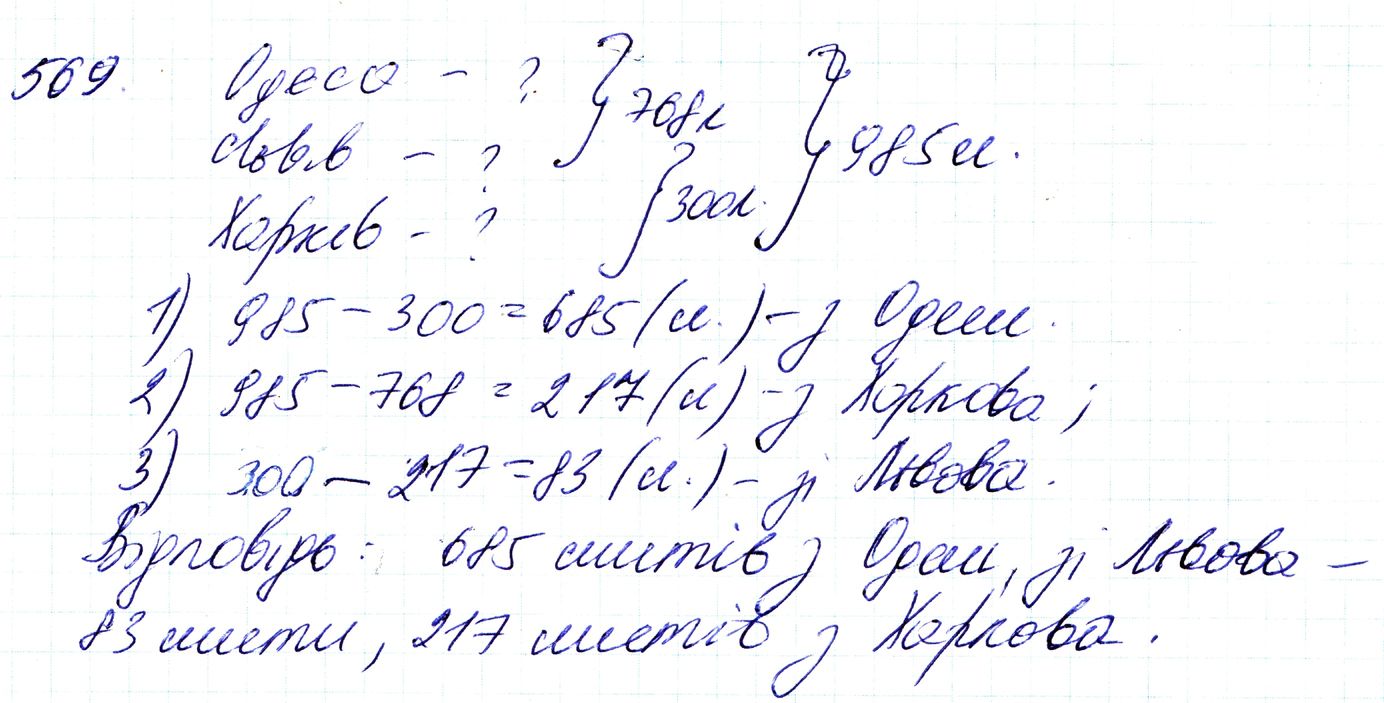 569. Одеса - ? } 768л } 985л.
Львів - ?
Харків - ? } 300л.
1) 985 - 300 = 685 (л.) - з Одеси.
2) 985 - 768 = 217 (л) - з Харкова;
3) 300 - 217 = 83 (л.) - зі Львова.
Відповідь: 685 листів з Одеси, зі Львова -
83 листи, 217 листів з Харкова.